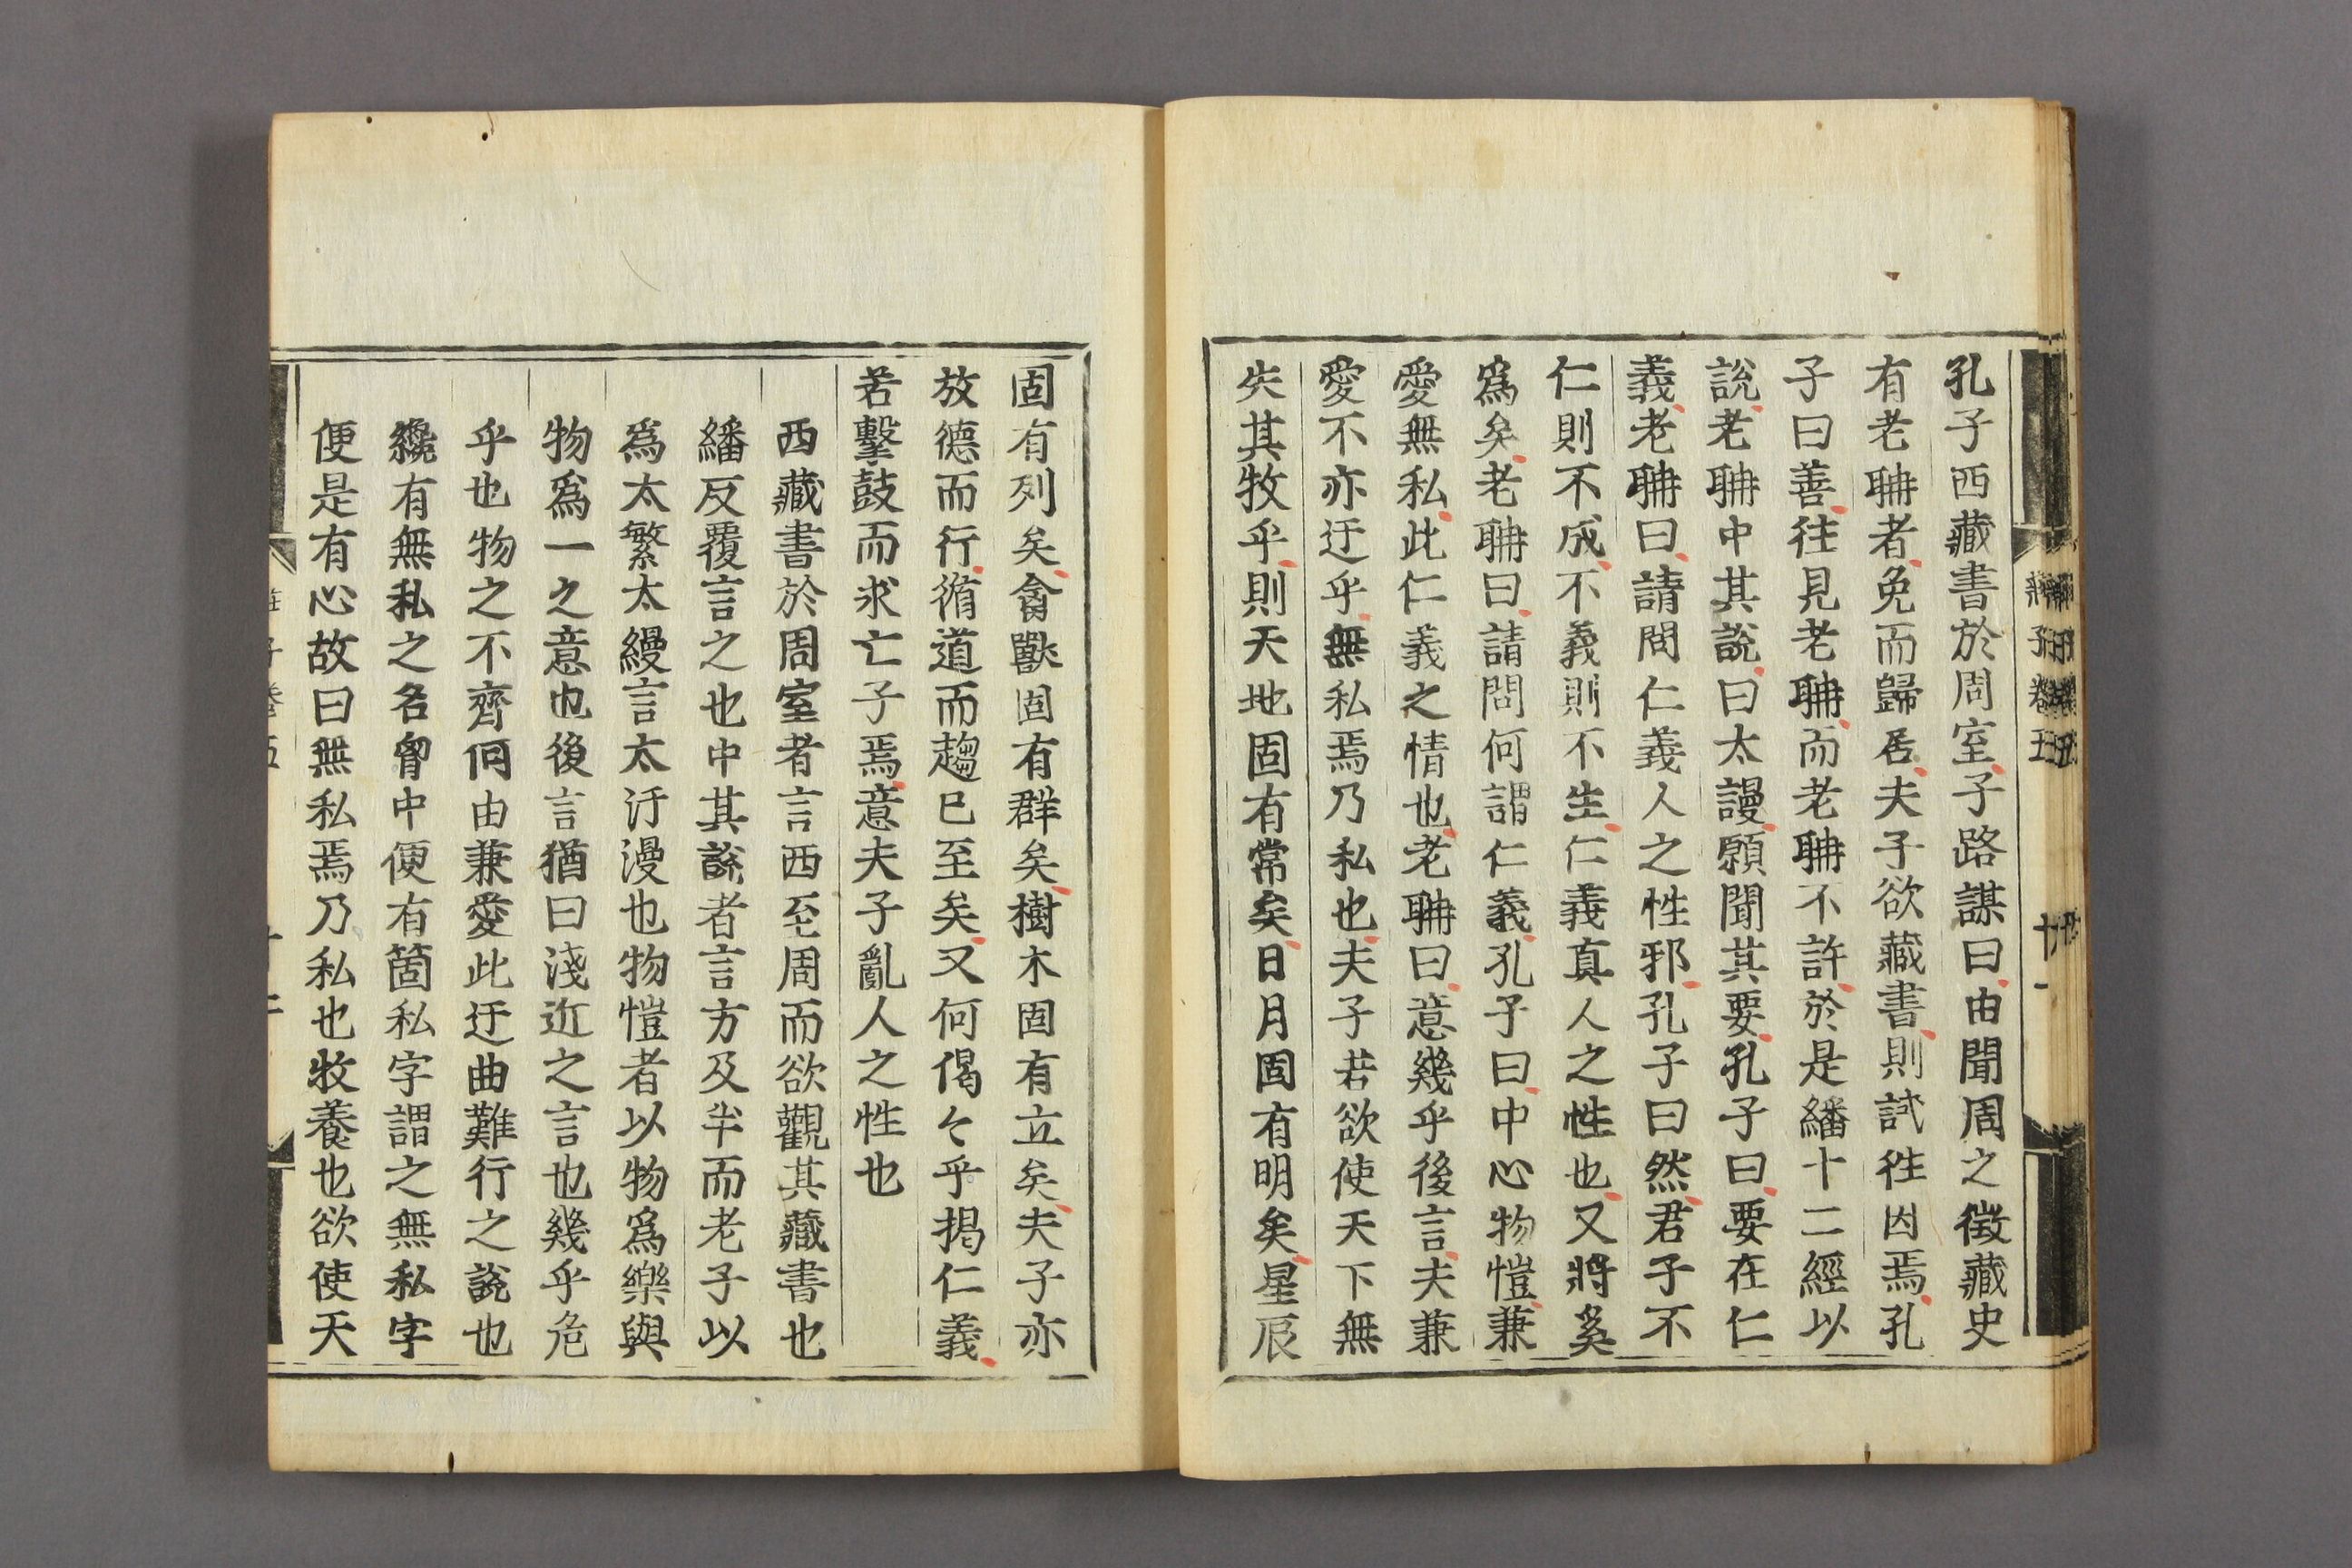 孔子西藏書於周室子路謀曰由聞周之徵藏史
有老聃者免而歸居夫子欲藏書則試徃因焉孔
子曰善徃見老聃而老聃不許於是繙十二經以
說老聃中其說曰太謾願聞其要孔子曰要在仁
義老聃曰請問仁義人之性邪孔子曰然君子不
仁則不成不義則不生仁義真人之性也又將奚
爲矣老聃曰請問何謂仁義孔子曰中心物愷兼
愛無私此仁義之情也老聃曰意幾乎後言夫兼
愛不亦迂乎無私焉乃私也夫子若欲使天下無
失其牧乎則天地固有常矣日月固有明矣星辰
固有列矣禽獸固有群矣樹木固有立矣夫子亦
放德而行循道而趨已至矣又何偈々乎揭仁義
若擊鼓而求亡子焉意夫子亂人之性也
西藏書於周室者言西至周而欲觀其藏書也
繙反覆言之也中其說者言方及半而老子以
爲太繁太縵言太汙漫也物愷者以物爲樂與
物爲一之意也後言猶曰淺近之言也幾乎危
乎也物之不齊何由兼愛此迂曲難行之說也
纔有無私之名胷中便有箇私字謂之無私字
便是有心故曰無私焉乃私也牧養也欲使天